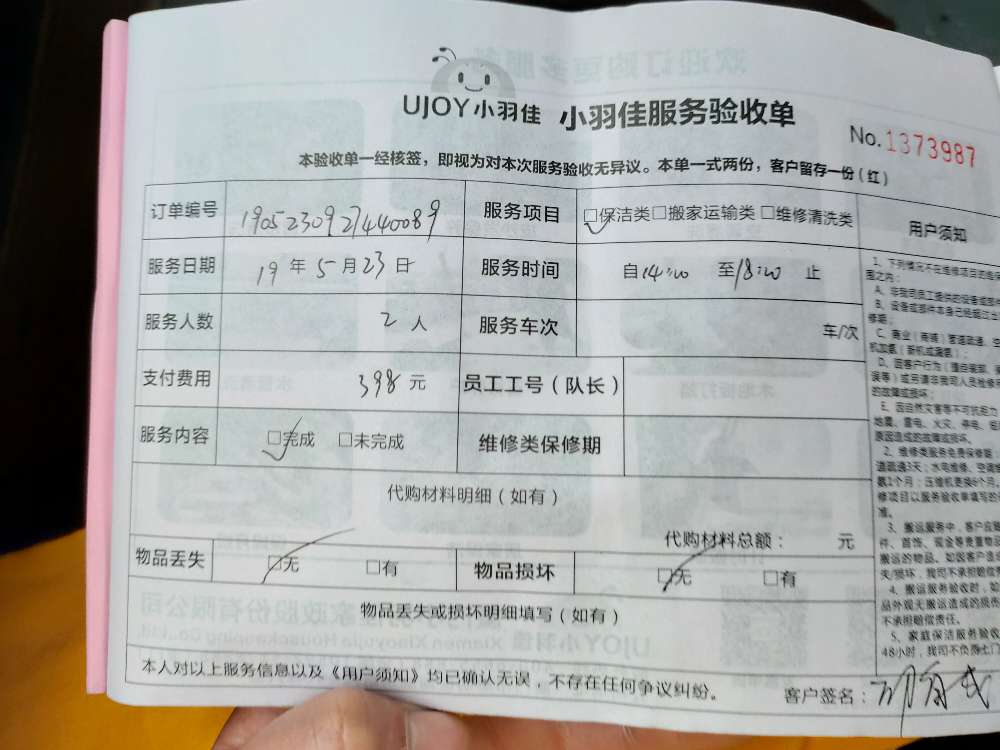 UJOY小羽佳 小羽佳服务验收单
No.1373987
本验收单一经核签，即视为对本次服务验收无异议。本单一式两份，客户留存一份（红）
订单编号 1905230927440089 服务项目 □保洁类□搬家运输类□维修清洗类
服务日期 19年5月23日 服务时间 自14:00 至18:00 止
服务人数 2人 服务车次 车/次
支付费用 398元 员工工号（队长）
服务内容 □完成 □未完成 维修类保修期
代购材料明细（如有）
代购材料总额： 元
物品丢失 □无 □有 物品损坏 □无 □有
物品丢失或损坏明细填写（如有）
本人对以上服务信息以及《用户须知》均已确认无误，不存在任何争议纠纷。
客户签名：
用户须知
1、下列情况不在维修项目的维保
围之内：
A、非我司员工提供的设备或部
B、设备或部件本身已经超过
修期；
C、商业（商铺）管道疏通、空
机加氨（新机或漏氨）；
D、因客户行为（擅自装卸、
误等）或另请非我司人员检修
的故障或损坏；
E、因自然灾害等不可抗拒力
地震、雷电、火灾、停电、
原因造成的故障或损坏。
2、维修类服务免费保修期：
道疏通3天；水电维修、空调
氨1个月；压缩机更换6个月。
修项目以服务验收单填写的
准。
3、搬运服务中，客户应
件、首饰、现金等贵重物品
搬运的物品。如因客户造
失/损坏，我司不承担赔偿
4、搬运服务验收时，如
品外观无搬运造成的损伤
不承担赔偿责任。
5、家庭保洁服务验收
48小时，我司不负责上门